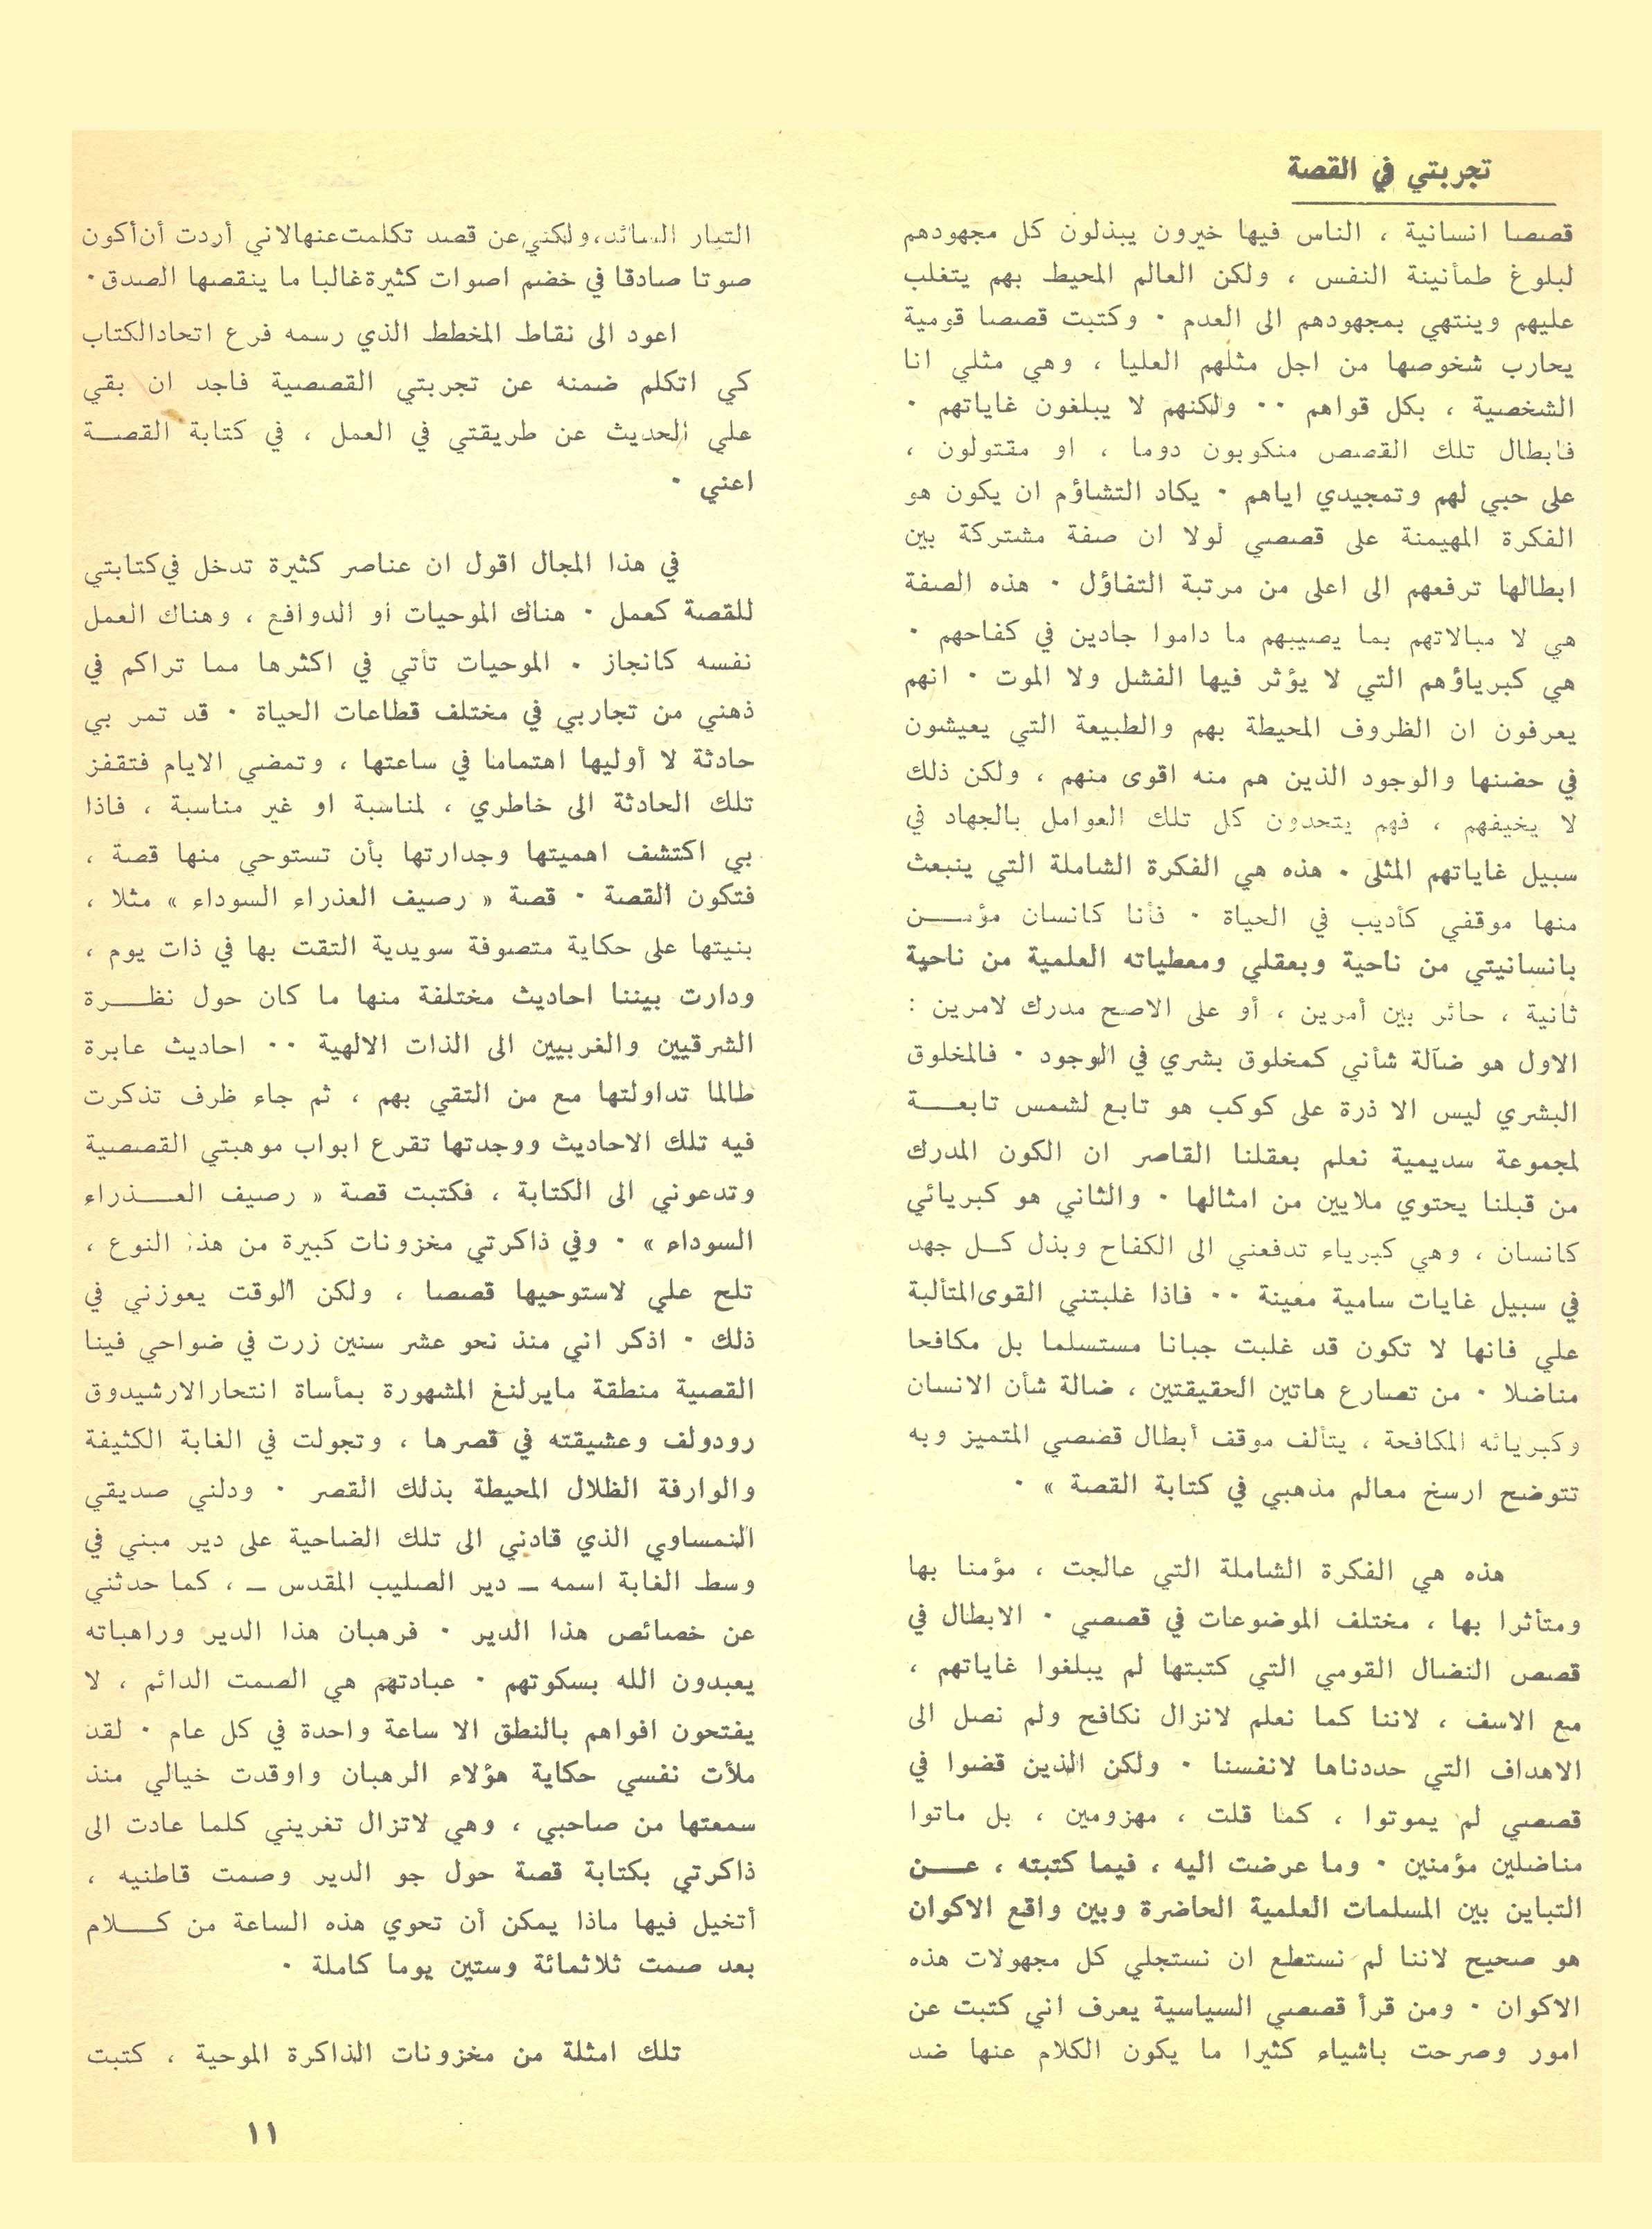 تجربتي في القصة
قصصا انسانية ، الناس فيها خيرون يبذلون كل مجهودهم
لبلوغ طمأنينة النفس ، ولكن العالم المحيط بهم يتغلب
عليهم وينتهي بمجهودهم الى العدم . وكتبت قصصا قومية
يحارب شخوصها من اجل مثلهم العليا ، وهي مثلي انا
الشخصية ، بكل قواهم .. ولكنهم لا يبلغون غاياتهم .
فابطال تلك القصص منكوبون دوما ، او مقتولون ،
على حبي لهم وتمجيدي اياهم . يكاد التشاؤم ان يكون هو
الفكرة المهيمنة على قصصي لولا ان صفة مشتركة بين
ابطالها ترفعهم الى اعلى من مرتبة التفاؤل . هذه الصفة
هي لا مبالاتهم بما يصيبهم ما داموا جادين في كفاحهم .
هي كبرياؤهم التي لا يؤثر فيها الفشل ولا الموت . انهم
يعرفون ان الظروف المحيطة بهم والطبيعة التي يعيشون
في حضنها والوجود الذين هم منه اقوى منهم ، ولكن ذلك
لا يخيفهم ، فهم يتحدون كل تلك العوامل بالجهاد في
سبيل غاياتهم المثلى . هذه هي الفكرة الشاملة التي ينبعث
منها موقفي كأديب في الحياة . فأنا كانسان مؤمن
بانسانيتي من ناحية وبعقلي ومعطياته العلمية من ناحية
ثانية ، حائر بين أمرين ، أو على الاصح مدرك لامرين :
الاول هو ضآلة شأني كمخلوق بشري في الوجود . فالمخلوق
البشري ليس الا ذرة على كوكب هو تابع لشمس تابعة
لمجموعة سديمية نعلم بعقلنا القاصر ان الكون المدرك
من قبلنا يحتوي ملايين من امثالها . والثاني هو كبريائي
كانسان ، وهي كبرياء تدفعني الى الكفاح وبذل كل جهد
في سبيل غايات سامية معينة .. فاذا غلبتني القوى المتألبة
علي فانها لا تكون قد غلبت جبانا مستسلما بل مكافحا
مناضلا . من تصارع هاتين الحقيقتين ، ضالة شأن الانسان
وكبريائه المكافحة ، يتألف موقف أبطال قصصي المتميز وبه
تتوضح ارسخ معالم مذهبي في كتابة القصة » .
هذه هي الفكرة الشاملة التي عالجت ، مؤمنا بها
ومتأثرا بها ، مختلف الموضوعات في قصصي . الابطال في
قصص النضال القومي التي كتبتها لم يبلغوا غاياتهم ،
مع الاسف ، لاننا كما نعلم لانزال نكافح ولم نصل الى
الاهداف التي حددناها لانفسنا . ولكن الذين قضوا في
قصصي لم يموتوا ، كما قلت ، مهزومين ، بل ماتوا
مناضلين مؤمنين . وما عرضت اليه ، فيما كتبته ، عن
التباين بين المسلمات العلمية الحاضرة وبين واقع الاكوان
هو صحيح لاننا لم نستطع ان نستجلي كل مجهولات هذه
الاكوان . ومن قرأ قصصي السياسية يعرف اني كتبت عن
امور وصرحت باشياء كثيرا ما يكون الكلام عنها ضد
التيار السائد، ولكني عن قصد تكلمت عنها لاني أردت أن أكون
صوتا صادقا في خضم اصوات كثيرة غالبا ما ينقصها الصدق .
اعود الى نقاط المخطط الذي رسمه فرع اتحاد الكتاب
كي اتكلم ضمنه عن تجربتي القصصية فاجد ان بقي
علي الحديث عن طريقتي في العمل ، في كتابة القصة
اعني .
في هذا المجال اقول ان عناصر كثيرة تدخل في كتابتي
للقصة كعمل . هناك الموحيات او الدوافع ، وهناك العمل
نفسه كانجاز . الموحيات تأتي في اكثرها مما تراكم في
ذهني من تجاربي في مختلف قطاعات الحياة . قد تمر بي
حادثة لا أوليها اهتماما في ساعتها ، وتمضي الايام فتقفز
تلك الحادثة الى خاطري ، لمناسبة او غير مناسبة ، فاذا
بي اكتشف اهميتها وجدارتها بأن تستوحي منها قصة ،
فتكون القصة . قصة « رصيف العذراء السوداء » مثلا ،
بنيتها على حكاية متصوفة سويدية التقت بها في ذات يوم ،
ودارت بيننا احاديث مختلفة منها ما كان حول نظرة
الشرقيين والغربيين الى الذات الالهية .. احاديث عابرة
طالما تداولتها مع من التقي بهم ، ثم جاء ظرف تذكرت
فيه تلك الاحاديث ووجدتها تقرع ابواب موهبتي القصصية
وتدعوني الى الكتابة ، فكتبت قصة « رصيف العذراء
السوداء » . وفي ذاكرتي مخزونات كبيرة من هذا النوع ،
تلح علي لاستوحيها قصصا ، ولكن الوقت يعوزني في
ذلك . اذكر اني منذ نحو عشر سنين زرت في ضواحي فينا
القصية منطقة مايرلنغ المشهورة بمأساة انتحار الارشيدوق
رودولف وعشيقته في قصرها ، وتجولت في الغابة الكثيفة
والوارفة الظلال المحيطة بذلك القصر . ودلني صديقي
النمساوي الذي قادني الى تلك الضاحية على دير مبني في
وسط الغابة اسمه ـ دير الصليب المقدس ـ ، كما حدثني
عن خصائص هذا الدير . فرهبان هذا الدير وراهباته
يعبدون الله بسكوتهم . عبادتهم هي الصمت الدائم ، لا
يفتحون افواهم بالنطق الا ساعة واحدة في كل عام . لقد
ملأت نفسي حكاية هؤلاء الرهبان واوقدت خيالي منذ
سمعتها من صاحبي ، وهي لاتزال تغريني كلما عادت الى
ذاكرتي بكتابة قصة حول جو الدير وصمت قاطنيه ،
أتخيل فيها ماذا يمكن أن تحوي هذه الساعة من كلام
بعد صمت ثلاثمائة وستين يوما كاملة .
تلك امثلة من مخزونات الذاكرة الموحية ، كتبت
١١